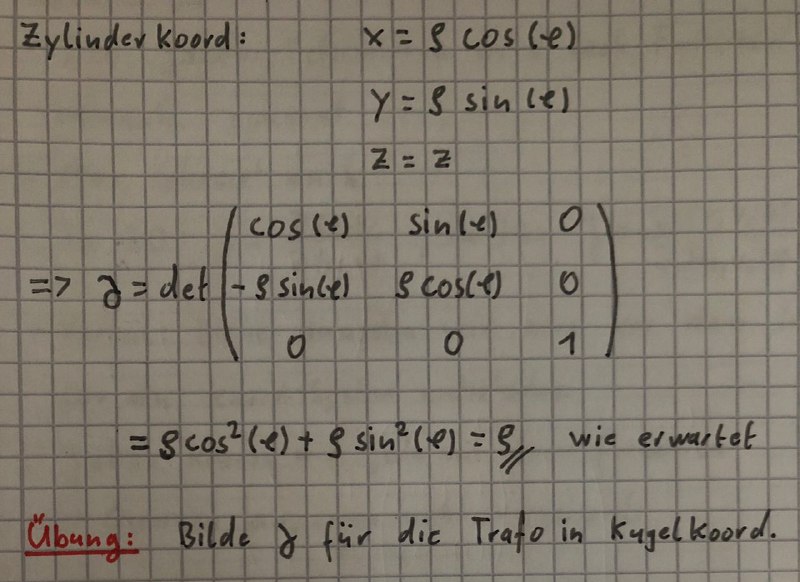 Zylinderkoord: x = ρ cos(φ)
y = ρ sin(φ)
z = z
cos(φ) sin(φ) 0
=> J = det -ρ sin(φ) ρ cos(φ) 0
0 0 1
= ρ cos²(φ) + ρ sin²(φ) = ρ wie erwartet
Übung: Bilde J für die Trafo in Kugelkoord.